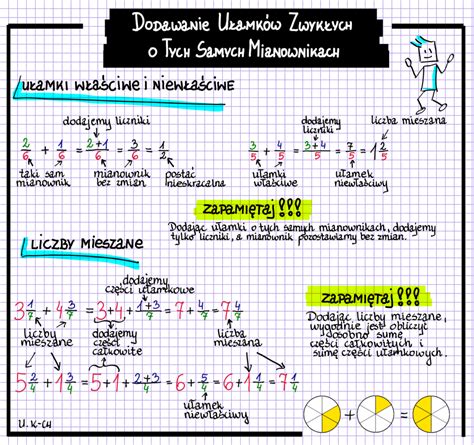 Dodawanie Ułamków Zwykłych
o Tych Samych Mianownikach
Ułamki właściwe i niewłaściwe
dodajemy liczniki
2/6 + 1/6 = 2+1/6 = 3/6 = 1/2
taki sam mianownik
mianownik bez zmian
postać nieskracalna
dodajemy liczniki
liczba mieszana
3/5 + 4/5 = 3+4/5 = 7/5 = 1 2/5
ułamki właściwe
ułamek niewłaściwy
Zapamiętaj!!!
Dodając ułamki o tych samych mianownikach, dodajemy
tylko liczniki, a mianownik pozostawiamy bez zmian.
Liczby mieszane
dodajemy
części ułamkowe
3 1/7 + 4 3/7 = 3+4 + 1+3/7 = 7 + 4/7 = 7 4/7
liczby mieszane
dodajemy części całkowite
liczba mieszana
5 2/4 + 1 3/4 = 5+1 + 2+3/4 = 6 + 5/4 = 6 + 1 1/4 = 7 1/4
ułamek niewłaściwy
Zapamiętaj!!!
Dodając liczby mieszane,
wygodnie jest obliczyć
osobno sumę
części całkowitych i
sumę części ułamkowych.
+ =
U. K-CH